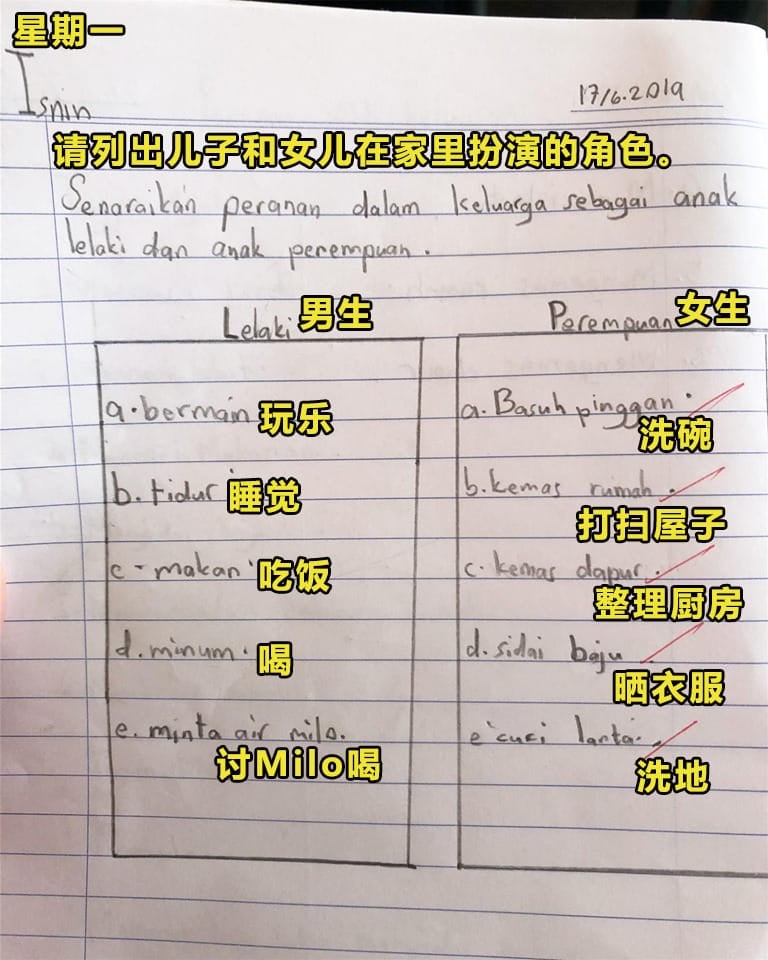 星期一
Isnin
17/6.2019
请列出儿子和女儿在家里扮演的角色。
Senaraikan peranan dalam keluarga sebagai anak
lelaki dan anak perempuan.
Lelaki 男生
Perempuan 女生
a. bermain 玩乐
b. tidur 睡觉
c - makan 吃饭
d. minum. 喝
e. minta air milo.
讨Milo喝
a. Basuh pinggan.
洗碗
b. kemas rumah.
打扫屋子
c. kemas dapur.
整理厨房
d. sidai baju
晒衣服
e cuci lantai.
洗地